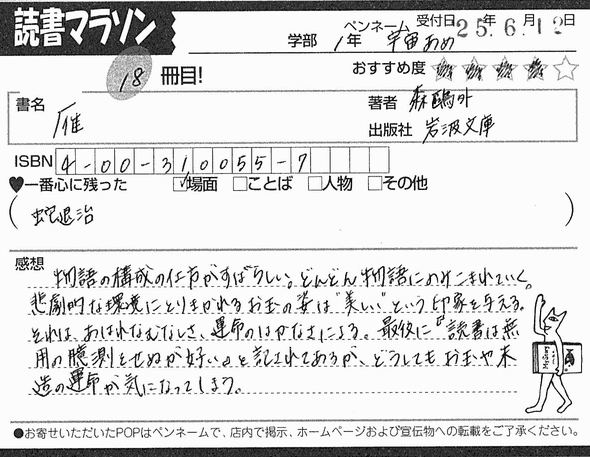 読書マラソン
ペンネーム 受付日 25年 6月 12日
学部 1年 宇宙あめ
18 冊目!
おすすめ度 ★★★★☆
書名 雁
著者 森鴎外
出版社 岩波文庫
ISBN 4-00-310055-7
♥一番心に残った ☑場面 □ことば □人物 □その他
(蛇退治)
感想
物語の構成の仕方がすばらしい。どんどん物語にのみこまれていく。
悲劇的な環境にとりまかれるお玉の姿は"美しい"という印象を与える。
それは、あはれなむなしさ、運命のはかなさによる。最後に『読書は無
用の臆測をせぬが好い。』と記されてあるが、どうしてもお玉や末
造の運命が気になってしまう。
●お寄せいただいたPOPはペンネームで、店内で掲示、ホームページおよび宣伝物への転載をご了承ください。